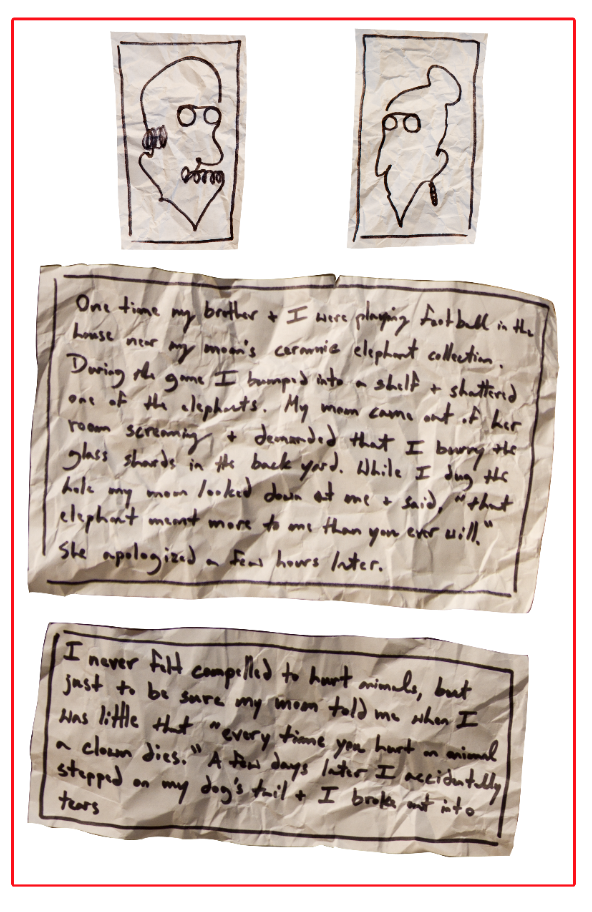 One time my brother + I were playing football in the
house near my mom's ceramic elephant collection.
During the game I bumped into a shelf + shattered
one of the elephants. My mom came out of her
room screaming + demanded that I burry the
glass shards in the back yard. While I dug the
hole my mom looked down at me + said, "that
elephant meant more to me than you ever will."
She apologized a few hours later.
I never felt compelled to hurt animals, but
just to be sure my mom told me when I
was little that "every time you hurt an animal
a clown dies." A few days later I accidentally
stepped on my dog's tail + I broke out into
tears